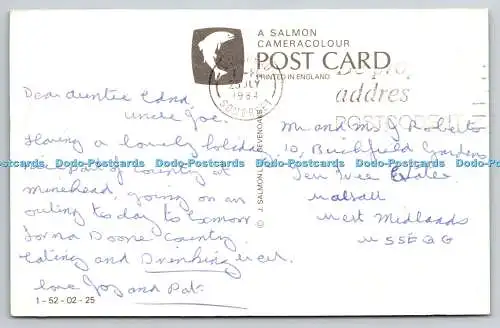 A SALMON
CAMERACOLOUR
POST CARD
PRINTED IN ENGLAND
SOMERSET
addres
Dear Auntie Edna,
Uncle Joe.
Having a lovely holiday
part of country at
Minehead, going on an
outing today to Exmoor
Lorna Doone Country.
Eating and Drinking well.
love Joy and Pat.
1-52-02-25
© J. SALMON
SEVENOAKS
Mr and Mrs J Roberts
10, Birchfield Gardens
Ten Tree Estate
Walsall
West Midlands
Dodo-Postcards Dodo-Postcards Dodo-Postcards Dodo-Postcards Dodo-Postcards